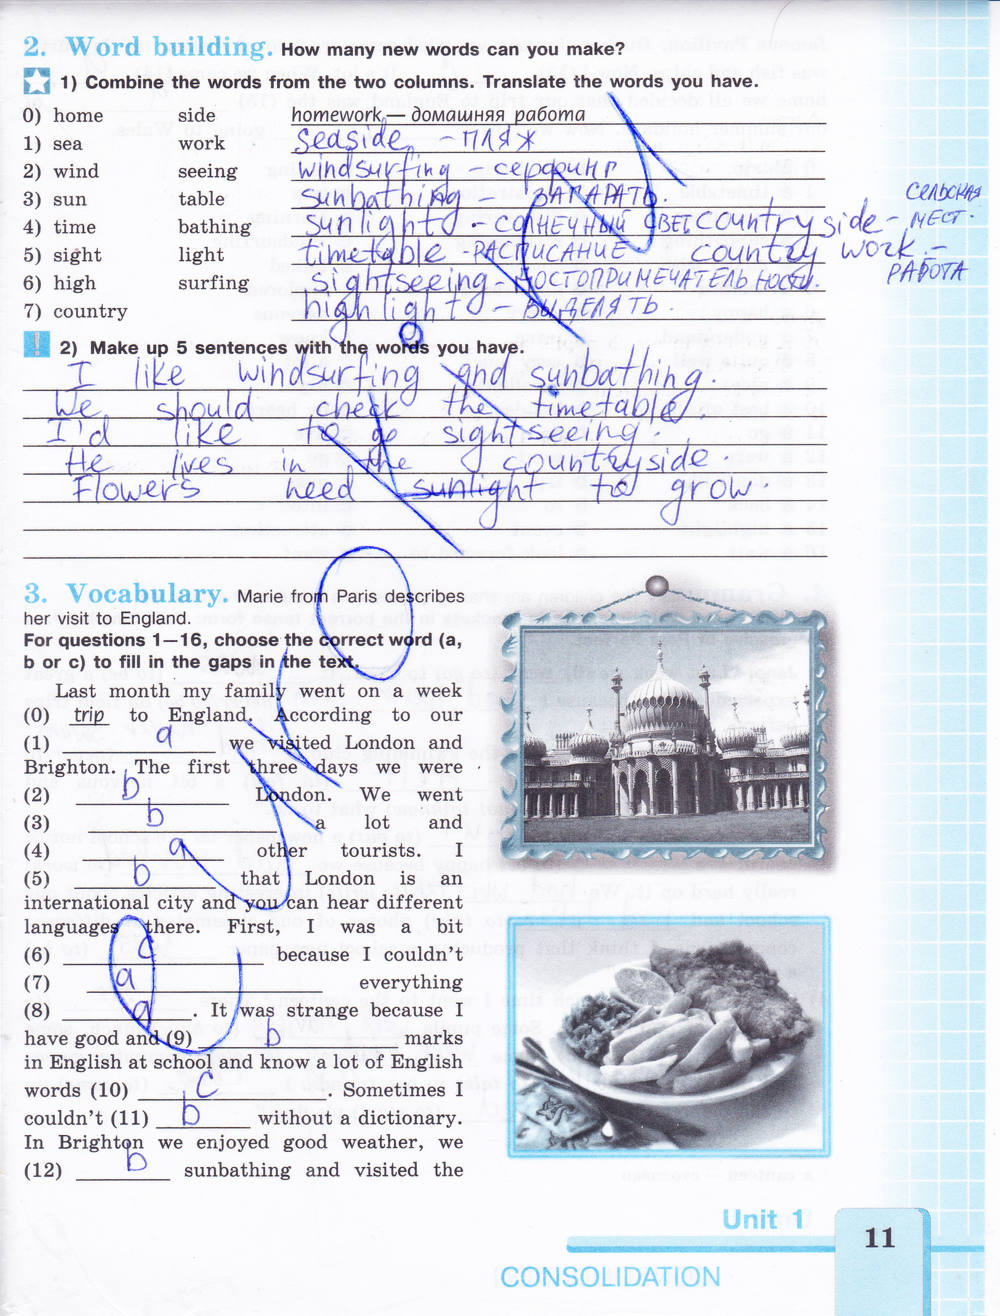 2. Word building. How many new words can you make?
1) Combine the words from the two columns. Translate the words you have.
0) home side homework — домашняя работа
1) sea work seaside - ПЛЯЖ
2) wind seeing windsurfing - серфинг
3) sun table sunbathing - ЗАГАРАТЬ.
4) time bathing sunlight - СОЛНЕЧНЫЙ СВЕТ countryside - СЕЛЬСКАЯ МЕСТ.
5) sight light timetable - РАСПИСАНИЕ country work - РАБОТА
6) high surfing sightseeing ДОСТОПРИМЕЧАТЕЛЬНОСТИ.
7) country highlight - ВЫДЕЛЯТЬ.
! 2) Make up 5 sentences with the words you have.
I like windsurfing and sunbathing.
We should check the timetable.
I'd like to go sightseeing.
He lives in the countryside.
Flowers need sunlight to grow.
3. Vocabulary. Marie from Paris describes
her visit to England.
For questions 1—16, choose the correct word (a,
b or c) to fill in the gaps in the text.
Last month my family went on a week
(0) trip to England. According to our
(1) a we visited London and
Brighton. The first three days we were
(2) b London. We went
(3) b a lot and
(4) a other tourists. I
(5) b that London is an
international city and you can hear different
languages there. First, I was a bit
(6) c because I couldn't
(7) a everything
(8) a. It was strange because I
have good and (9) b marks
in English at school and know a lot of English
words (10) c. Sometimes I
couldn't (11) b without a dictionary.
In Brighton we enjoyed good weather, we
(12) b sunbathing and visited the
Unit 1
11
CONSOLIDATION